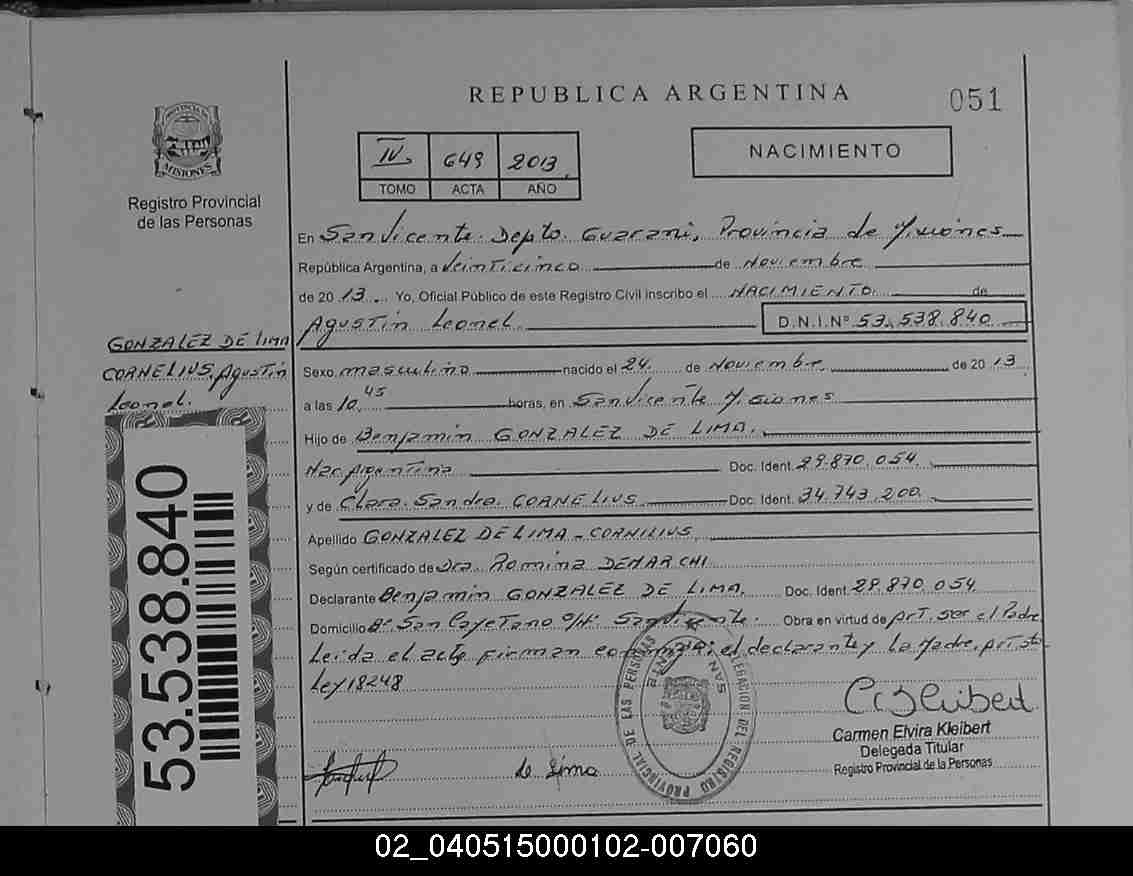 REPUBLICA ARGENTINA
051
PROVINCIA DE
MISIONES
Registro Provincial
de las Personas
IV. 649 2013
TOMO ACTA AÑO
NACIMIENTO
En San Vicente. Depto. Guarani, Provincia de Misiones
República Argentina, a Veinticinco de Noviembre
de 2013. Yo, Oficial Público de este Registro Civil inscribo el NACIMIENTO. de
Agustin Leonel. D.N.I.Nº 53.538.840
GONZALEZ DE LIMA
CORNELIUS, Agustin
Leonel.
Sexo masculino nacido el 24. de Noviembre de 2013
a las 10.45 horas, en San Vicente Misiones
Hijo de Benjamin GONZALEZ DE LIMA.
Nac. Argentina Doc. Ident. 29.870.054.
y de Clara. Sandra. CORNELIUS Doc. Ident. 34.743.200.
Apellido GONZALEZ DE LIMA - CORNILIUS
Según certificado de Dra. Romina DEMARCHI
Declarante Benjamin GONZALEZ DE LIMA. Doc. Ident. 29.870.054
Domicilio Bº San Cayetano S/Nº San Vicente. Obra en virtud de art. ser el Padre
Leida el acta firman conmigo, el declarante y La Madre, art. 5to
Ley 18248
53.538.840
DELEGACION DEL REGISTRO PROVINCIAL DE LAS PERSONAS
SAN VICENTE
Carmen Elvira Kleibert
Delegada Titular
Registro Provincial de la Personas
de Lima
02_040515000102-007060